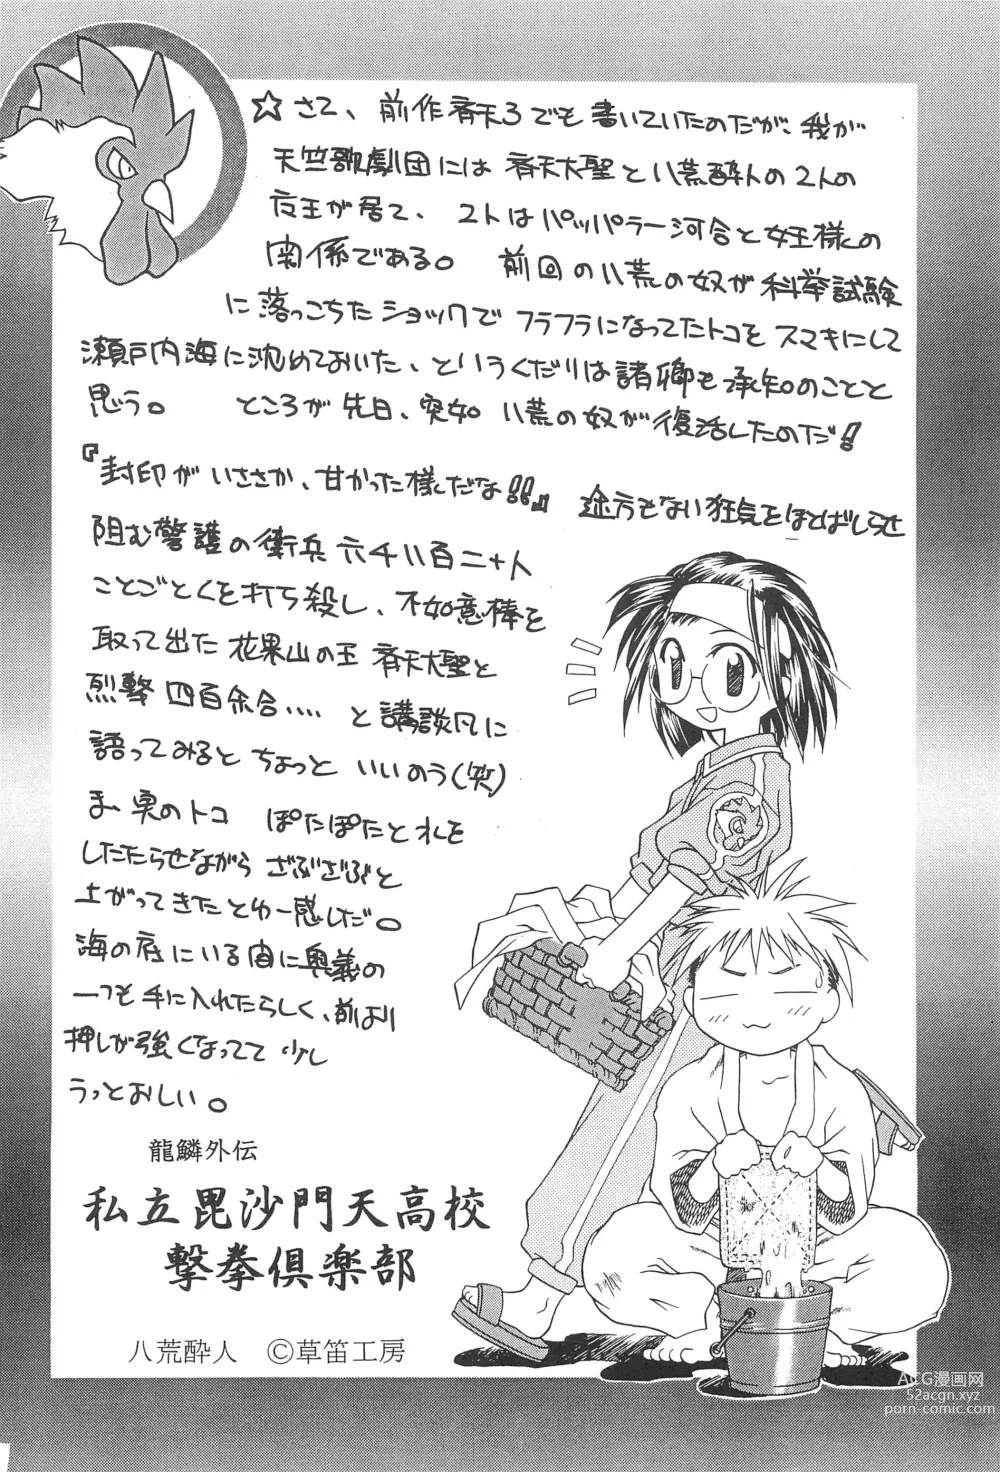 ☆さて、前作斉天3でも書いていたのだが、我が
天竺歌劇団には斉天大聖と八荒酔人の2人の
女王が居て、2人はパッパラー河合と女王様の
関係である。前回の八荒の奴が科挙試験
に落っこちたショックでフラフラになってたトコをスマキにして
瀬戸内海に沈めておいた、というくだりは諸卿も承知のことと
思う。ところが先日、突如八荒の奴が復活したのだ!
『封印がいささか、甘かった様だな!!』途方もない狂気をほとばしらせ
阻む警護の衛兵六千八百二十人
ことごとくを打ち殺し、不如意棒を
取って出た花果山の王斉天大聖と
烈撃四百余合‥‥と講談風に
語ってみるとちょっといいのう(笑)
ま、実のトコぽたぽたと水を
したたらせながらざぶざぶと
上がってきたとゆー感じだ。
海の底にいる間に奥義の
一つも手に入れたらしく、前より
押しが強くなってて少し
うっとおしい。
龍鱗外伝
私立毘沙門天高校
撃拳倶楽部
八荒酔人 ©草笛工房
ACG漫画网
52acgn.xyz
porn-comic.com